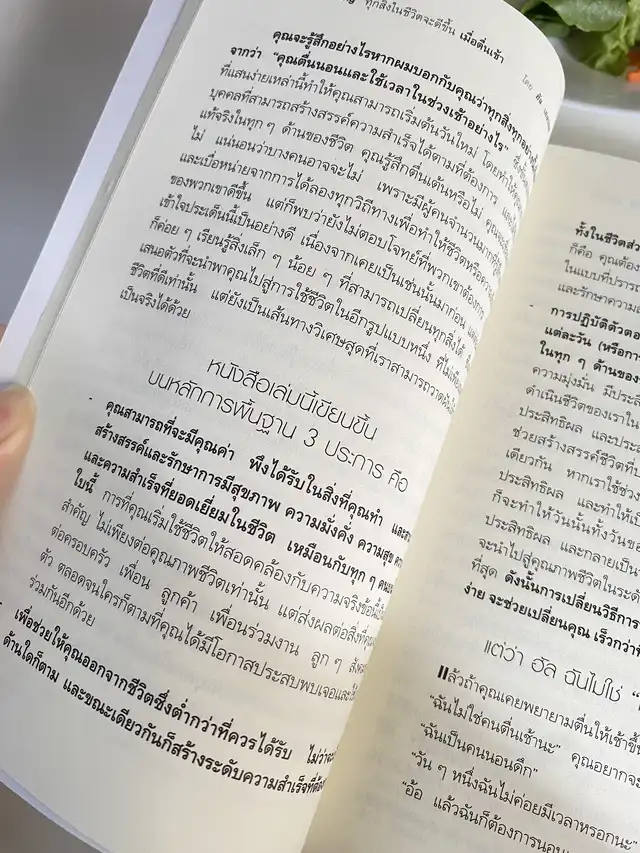 ทุกสิ่งในชีวิตจะดีขึ้น เมื่อตื่นเช้า
โดย ฮัล
คุณจะรู้สึกอย่างไรหากผมบอกกับคุณว่าทุกสิ่งทุกอย่าง
จากว่า “คุณตื่นนอนและใช้เวลาในช่วงเช้าอย่างไร”
ที่แสนง่ายเหล่านี้ทำให้คุณสามารถเริ่มต้นวันใหม่ โดยทำให้
บุคคลที่สามารถสร้างสรรค์ความสำเร็จได้ตามที่ต้องการ และ
แท้จริงในทุก ๆ ด้านของชีวิต คุณรู้สึกตื่นเต้นหรือไม่
ไม่ แน่นอนว่าบางคนอาจจะไม่ เพราะมีผู้คนจำนวนมาก
และเบื่อหน่ายจากการได้ลองทุกวิถีทางเพื่อทำให้ชีวิตหรือ
ของพวกเขาดีขึ้น แต่ก็พบว่ายังไม่ตอบโจทย์ที่พวกเขาต้องการ
เข้าใจประเด็นนี้เป็นอย่างดี เนื่องจากเคยเป็นเช่นนั้นมาก่อน
ก็ค่อย ๆ เรียนรู้สิ่งเล็ก ๆ น้อย ๆ ที่สามารถเปลี่ยนทุกสิ่งได้
เสนอตัวที่จะนำพาคุณไปสู่การใช้ชีวิตในอีกรูปแบบหนึ่ง ที่ไม่
ชีวิตที่ดีเท่านั้น แต่ยังเป็นเส้นทางวิเศษสุดที่เราสามารถวาดฝัน
เป็นจริงได้ด้วย
หนังสือเล่มนี้เขียนขึ้น
บนหลักการพื้นฐาน 3 ประการ คือ
คุณสามารถที่จะมีคุณค่า พึงได้รับในสิ่งที่คุณทำ และ
สร้างสรรค์และรักษาการมีสุขภาพ ความมั่งคั่ง ความสุข
และความสำเร็จที่ยอดเยี่ยมในชีวิต เหมือนกับทุก ๆ คน
ใบนี้ การที่คุณเริ่มใช้ชีวิตให้สอดคล้องกับความจริงข้อนี้
สำคัญ ไม่เพียงต่อคุณภาพชีวิตเท่านั้น แต่ส่งผลต่อสิ่งที่คุณ
ต่อครอบครัว เพื่อน ลูกค้า เพื่อนร่วมงาน ลูก ๆ
ตัว ตลอดจนใครก็ตามที่คุณได้มีโอกาสประสบพบเจอและ
ร่วมกันอีกด้วย
เพื่อช่วยให้คุณออกจากชีวิตซึ่งต่ำกว่าที่ควรได้รับ ไม่ว่าจะ
ด้านใดก็ตาม และขณะเดียวกันก็สร้างระดับความสำเร็จที่
ทั้งในชีวิตส่วน
ก็คือ คุณต้อง
ในแบบที่ปรารถ
และรักษาความ
การปฏิบัติตัวตอ
แต่ละวัน (หรือกา
ในทุก ๆ ด้านของ
ความมุ่งมั่น มีประสิ
ดำเนินชีวิตของเราใน
ประสิทธิผล และประ
ช่วยสร้างสรรค์ชีวิตที่
เดียวกัน หากเราใช้ช่ว
ประสิทธิผล และทำให้
ก็จะทำให้วันนั้นทั้งวันของ
ประสิทธิผล และกลายเป็น
จะนำไปสู่คุณภาพชีวิตในระดั
ที่สุด ดังนั้นการเปลี่ยนวิธีการ
ง่าย จะช่วยเปลี่ยนคุณ เร็วกว่าที่
แต่ว่า ฮัล ฉันไม่ใช่ “
แล้วถ้าคุณเคยพยายามตื่นให้เช้าขึ้น
“ฉันไม่ใช่คนตื่นเช้านะ” คุณอยากจะ
“ฉันเป็นคนนอนดึก”
“วัน ๆ หนึ่งฉันไม่ค่อยมีเวลาหรอกนะ”
“อ้อ แล้วฉันก็ต้องการนอน